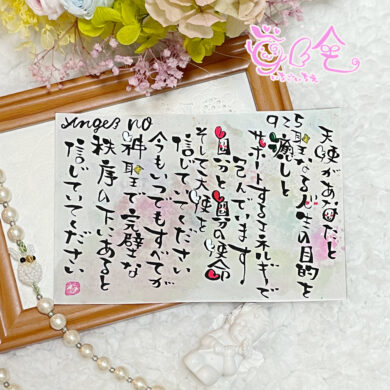 Angel no
925
天使があなたと
聖なる人生の目的を
癒しと
サポートするエネルギーで
包んでいます
自分と自分の使命
そして天使を
信じていてください
今もいつでもすべてが
神聖で完璧な
秩序の下にあると
信じていてください